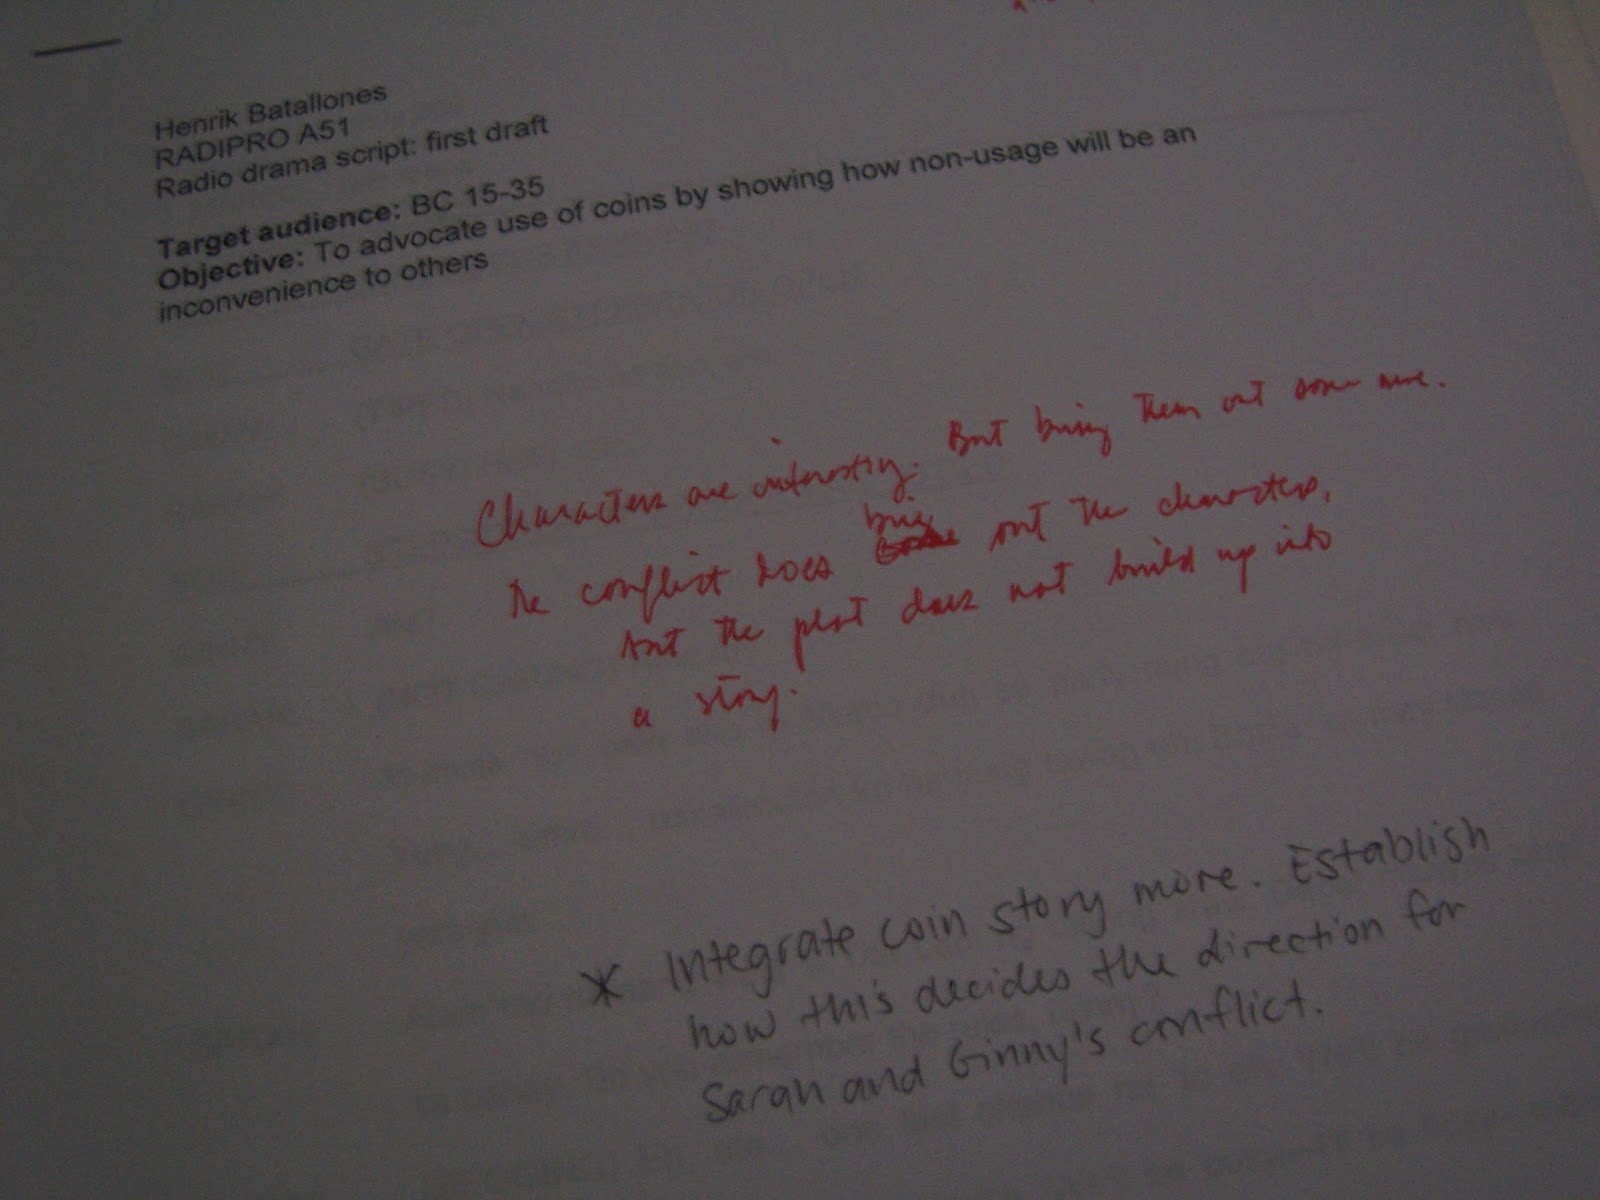 Henrik Batallones
RADIPRO A51
Radio drama script: first draft
Target audience: BC 15-35
Objective: To advocate use of coins by showing how non-usage will be an
inconvenience to others
Characters are interesting. But bring them out some more.
The conflict does bring out the characters,
but the plot does not build up into
a story.
* Integrate coin story more. Establish
how this decides the direction for
Sarah and Ginny's conflict.